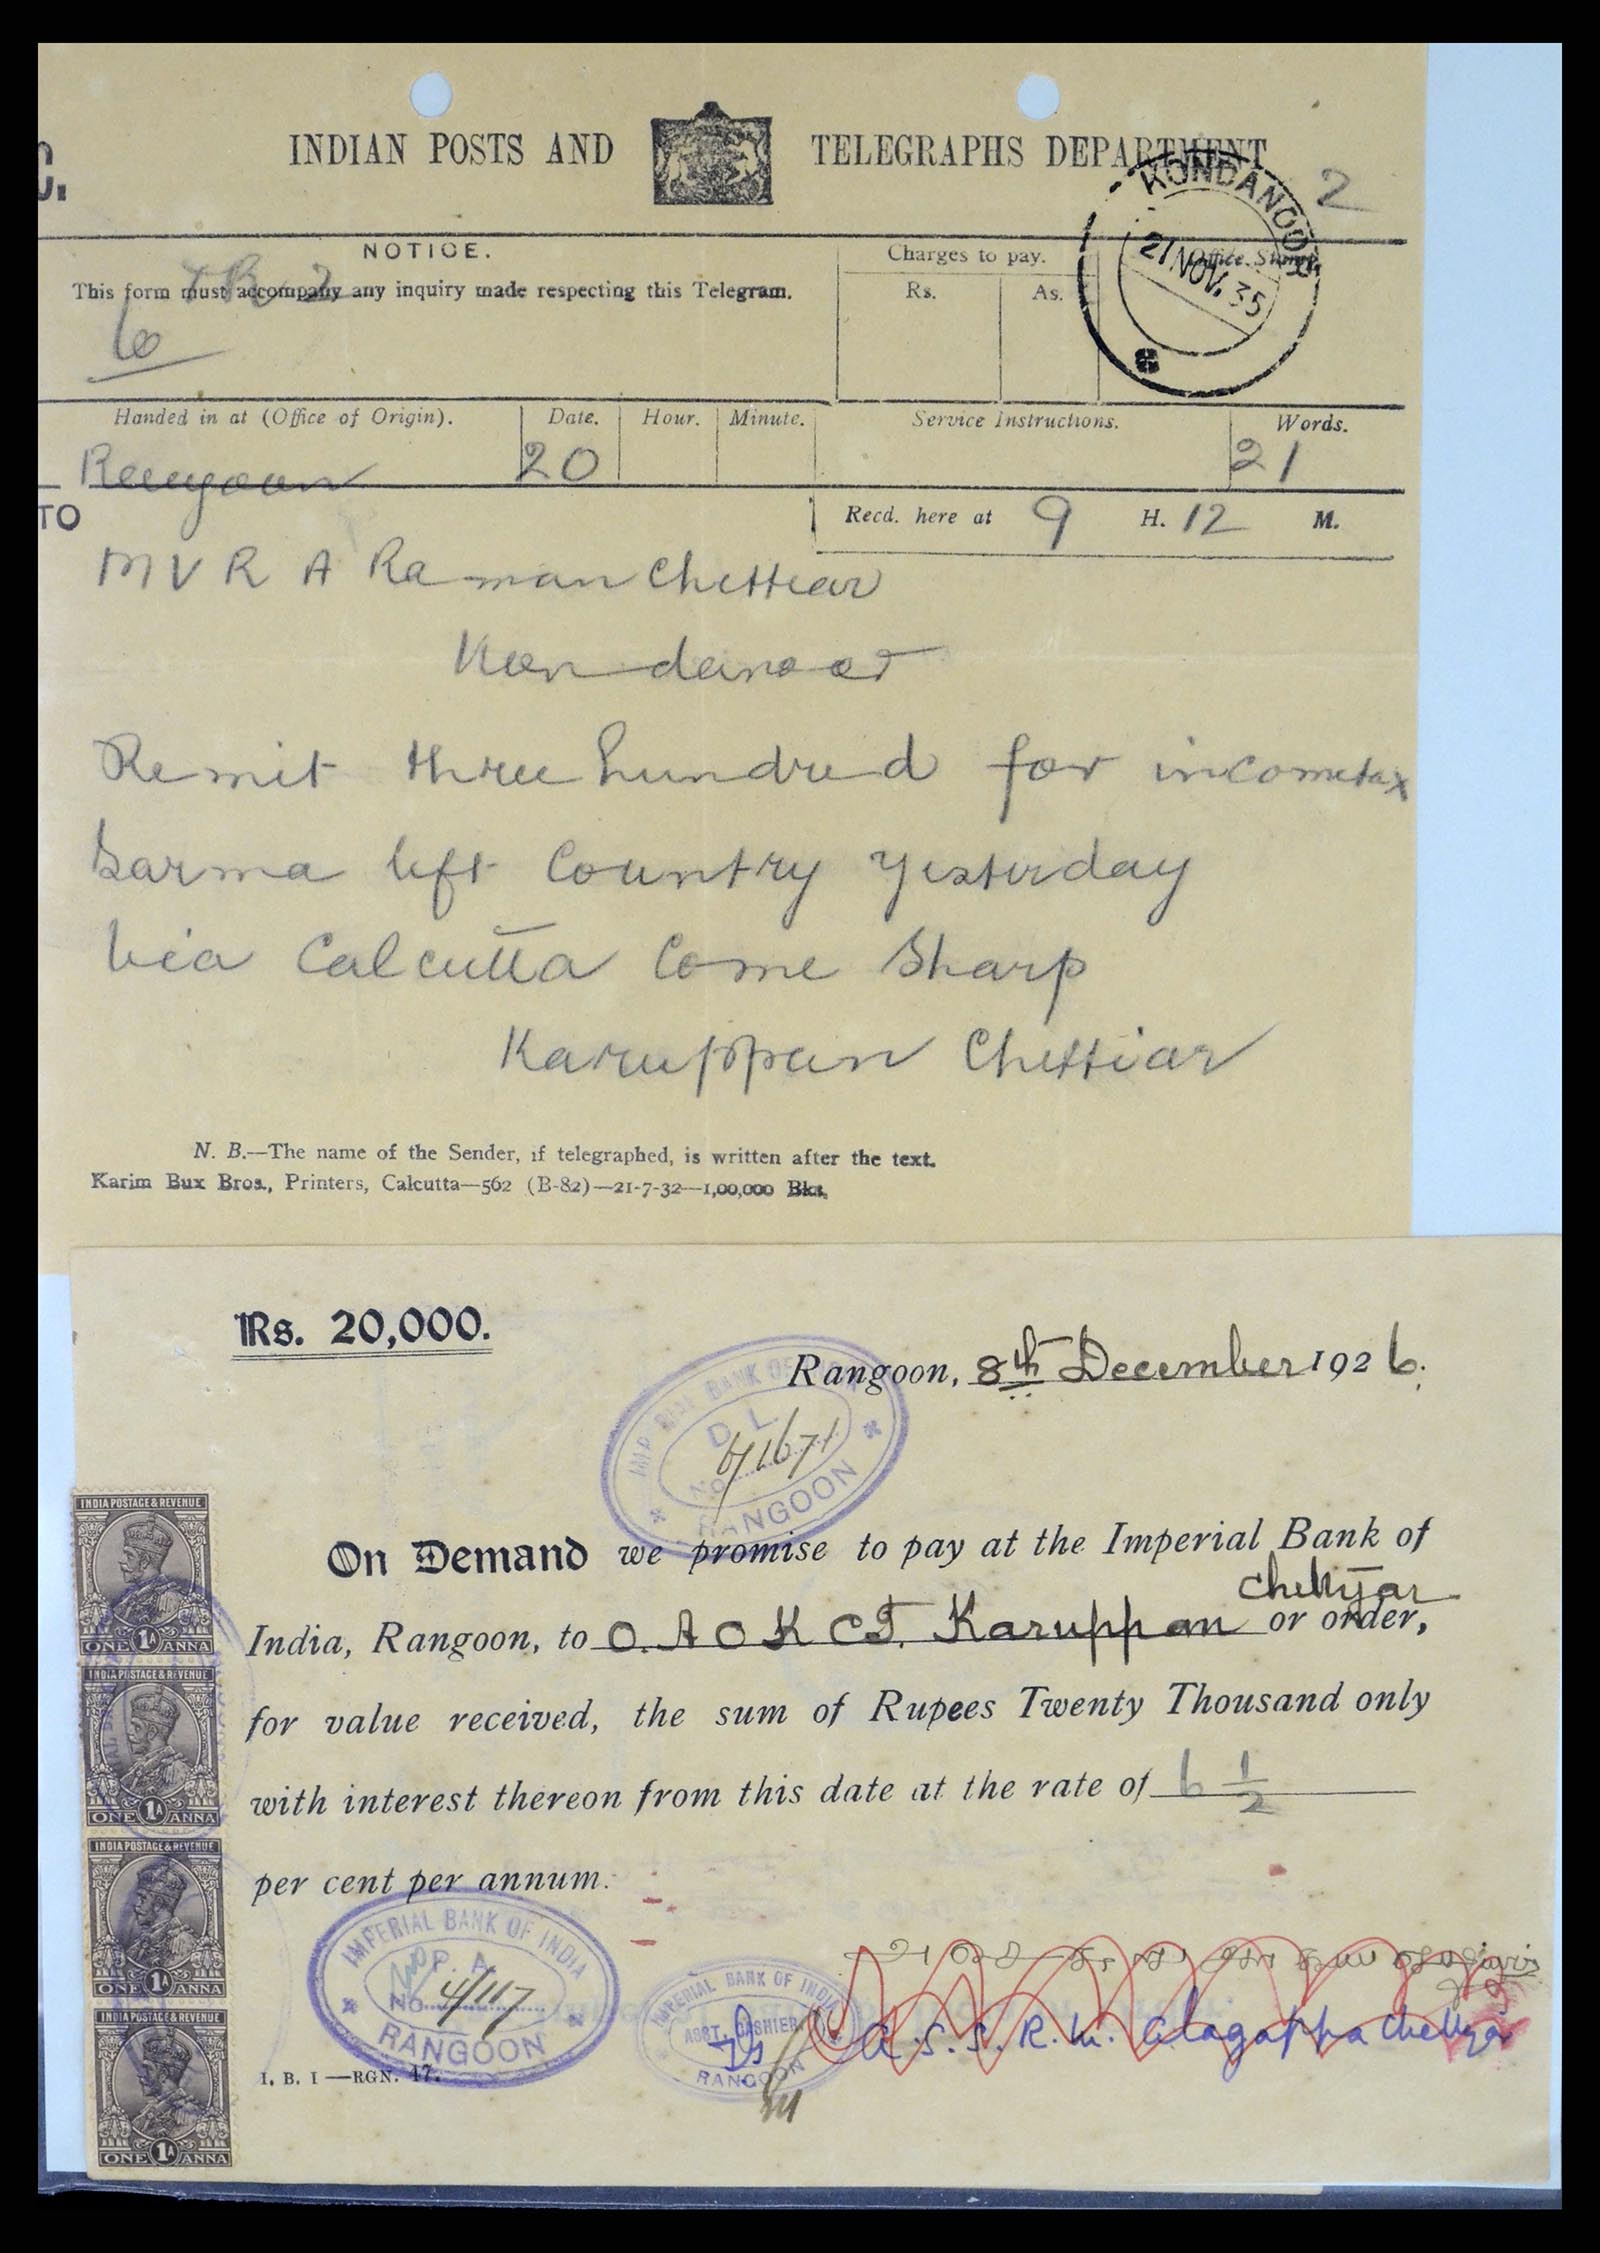 INDIAN POSTS AND TELEGRAPHS DEPARTMENT
2
KONDANOOR
21 NOV. 35
NOTICE.
This form must accompany any inquiry made respecting this Telegram.
Charges to pay.
Rs. As.
Office Stamp
Handed in at (Office of Origin). Date. Hour. Minute. Service Instructions. Words.
Rangoon 20 21
TO
Recd. here at 9 H. 12 M.
M V R A Raman Chettiar
Kondanoor
Remit three hundred for incometax
Sarma left Country yesterday
via Calcutta Come Sharp
Karuppan Chettiar
N. B.—The name of the Sender, if telegraphed, is written after the text.
Karim Bux Bros., Printers, Calcutta—562 (B-82)—21-7-32—1,00,000 Bks.
Rs. 20,000.
Rangoon, 8th December 1926.
IMPERIAL BANK OF
D. L.
No.
RANGOON
On Demand we promise to pay at the Imperial Bank of
India, Rangoon, to O. A O K CT. Karuppan Chettyar or order,
for value received, the sum of Rupees Twenty Thousand only
with interest thereon from this date at the rate of 6 1/2
per cent per annum.
INDIA POSTAGE & REVENUE
ONE 1A ANNA
INDIA POSTAGE & REVENUE
ONE 1A ANNA
INDIA POSTAGE & REVENUE
ONE 1A ANNA
INDIA POSTAGE & REVENUE
ONE 1A ANNA
IMPERIAL BANK OF INDIA
P. A.
No. 4/117
RANGOON
IMPERIAL BANK OF INDIA
ASST. CASHIER
RANGOON
A. S. S. R. M. Alagappa Chettyar
I. B. I—RGN. 47.